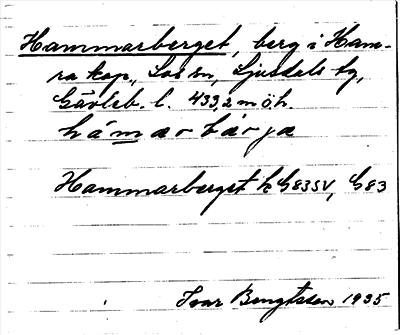 Hammarberget, berg i Ham-
ra kap., Los sn, Ljusdals tg,
Gävleb. l. 433,2 m ö h.
hámarbárja
Hammarberget k G83SV, G83
Ivar Bengtsson 1935